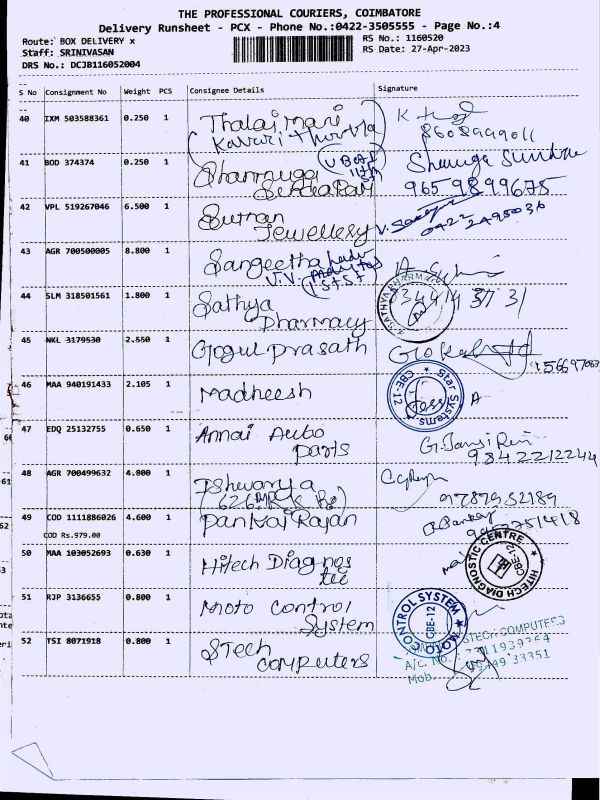 THE PROFESSIONAL COURIERS, COIMBATORE
Delivery Runsheet - PCX - Phone No.:0422-3505555 - Page No.:4
Route: BOX DELIVERY x
RS No.: 1160520
Staff: SRINIVASAN
RS Date: 27-Apr-2023
DRS No.: DCJB116052004
S No Consignment No Weight PCS Consignee Details Signature
40 IXM 503588361 0.250 1 Thalaimari
8608999011
41 BOD 374374 0.250 1 Shanmuga
Sundaram
9659899675
42 VPL 519267046 6.500 1 Suman
Jewellesy
0422 2495036
43 AGR 700500005 8.800 1 Sangeetha
V.V.
44 SLM 318501561 1.800 1 Sathya
Pharmacy
SATHYA PHARMACY
45 NKL 3179530 2.550 1 Gogul prasath
46 MAA 940191433 2.105 1 Madheesh
Star Systems CBE-12
47 EDQ 25132755 0.650 1 Annai Auto
parts
9842212244
48 AGR 700499632 4.800 1 Ishwarya
9787952189
49 COD 1111886026 4.600 1 Pankaj Rajan
COD Rs.979.00
50 MAA 103052693 0.630 1 Hitech Diagnos
tic
HITECH DIAGNOSTIC CENTRE CBE-12
51 RJP 3136655 0.800 1 Moto control
System
MOTO CONTROL SYSTEM CBE-12
52 TSI 8071918 0.800 1 STech
computers
STECH COMPUTERS
A/c. No.
Mob. 33351